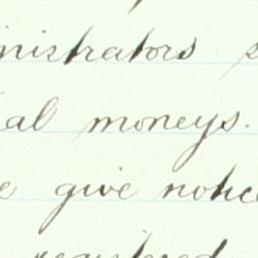 inistrators s
al moneys.
e give notice
registered